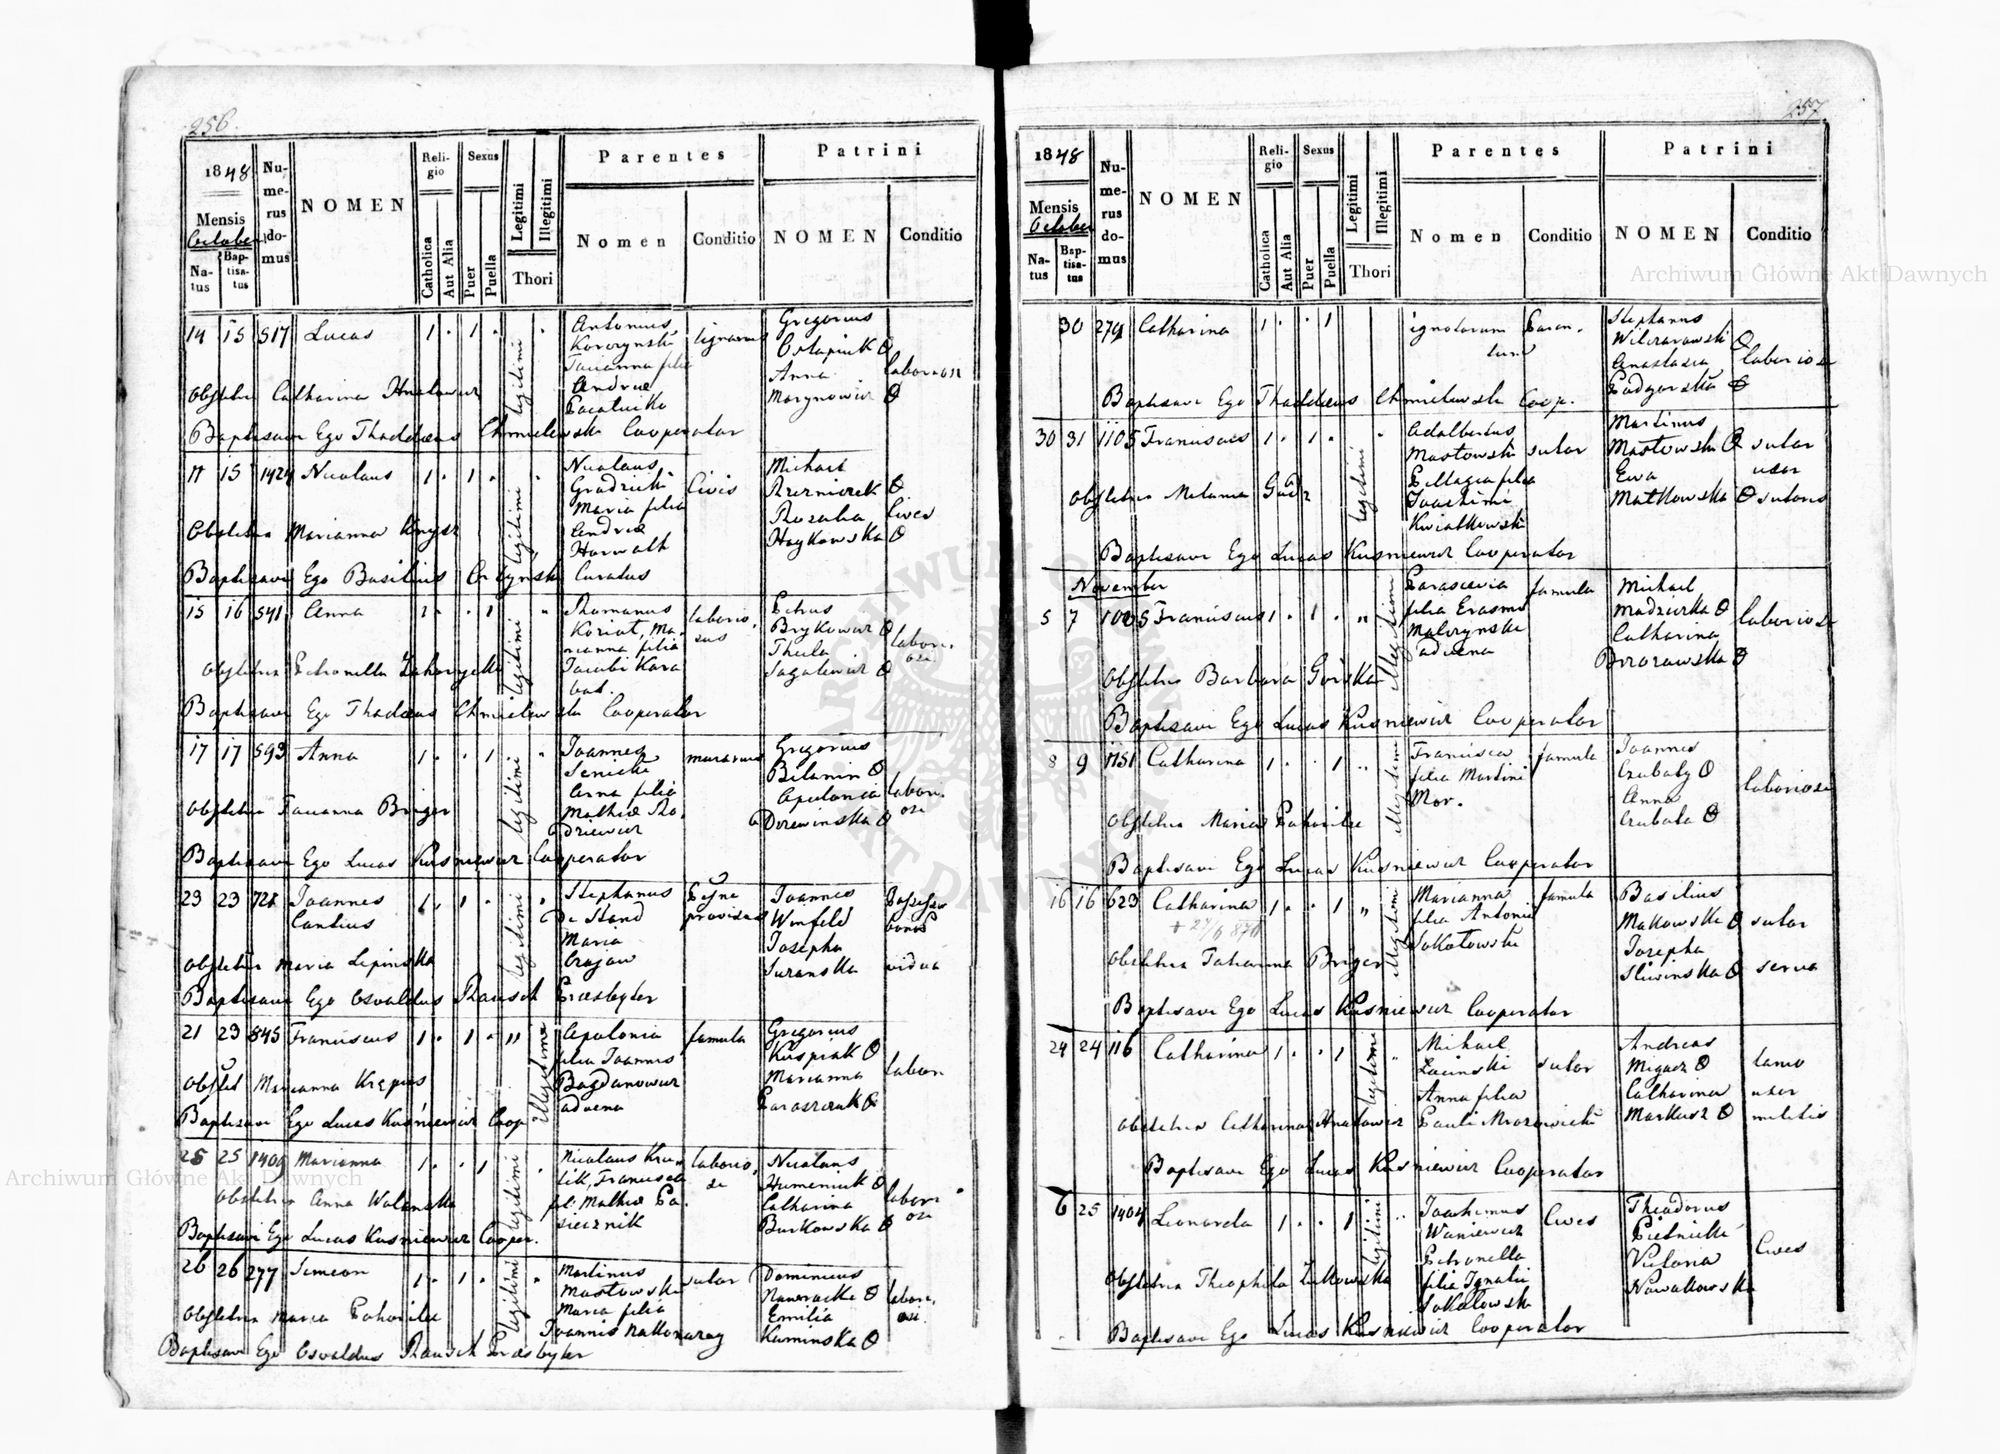 256.
1848
Nu-
me-
rus
do-
mus
NOMEN
Reli-
gio
Sexus
Legitimi
Illegitimi
Thori
Parentes
Patrini
Mensis
October
Na-
tus
Bap-
tisa-
tus
Catholica
Aut Alia
Puer
Puella
Nomen
Conditio
NOMEN
Conditio
14 15 517 Lucas 1 . 1 . legitimi
Antonius
Korczynski
Tacianna filia
Andreæ
Pacaluika
lignarius
Gregorius
Ostapiuk
Anna
Marynowicz
laboriosi
Obstetrix Catharina Hnatowicz
Baptisavi Ego Thaddæus Chmielewski Cooperator
11 15 1424 Nicolaus 1 . 1 . legitimi
Nicolaus
Grodzicki
Maria filia
Andreæ
Horwath
Civis
Michael
Rzezniczek
Rosalia
Haykowska
Cives
Obstetrix Marianna Knysz
Baptisavi Ego Basilius Ordynski Curatus
15 16 541 Anna 1 . . 1 legitimi
Romanus
Koriat, Ma-
rianna filia
Jacobi Kara
bat.
laborio-
sus
Petrus
Brykowicz
Thecla
Sagalewicz
labori-
osi
Obstetrix Petronella Zahorycka
Baptisavi Ego Thadæus Chmielewski Cooperator
17 17 593 Anna 1 . . 1 legitimi
Joannes
Senicki
Anna filia
Mathiæ Ro-
dziewicz
murarius
Gregorius
Bilanin
Apolonia
Drewinska
labori-
osi
Obstetrix Tacianna Briger
Baptisavi Ego Lucas Kusniewicz Cooperator
23 23 721 Joannes
Cantius
1 . 1 . legitimi
Stephanus
De Stand
Maria
Czajow
provisus
Joannes
Winfeld
Josepha
Suranska
Possessor
bonor.
vidua
Obstetrix Maria Lipinska
Baptisavi Ego Osvaldus Rausch Præsbyter
21 23 845 Franciscus 1 . 1 . " Illegitimi
Apolonia
filia Joannis
Bogdanowicz
advena
famula
Gregorius
Kuspiak
Marianna
Paraszczuk
labori
Obstet Marianna Krepus
Baptisavi Ego Lucas Kusniewicz Coop
25 25 1409 Marianna 1 . . 1 legitimi
Nicolaus Kru-
lik, Francisca
fil. Mathiæ Pa-
siecznik
laborio-
si
Nicolaus
Humeniuk
Catharina
Burkowska
labori-
osi
Obstetrix Anna Wolanska
Baptisavi Ego Lucas Kusniewicz Cooper.
26 26 277 Simeon 1 . 1 . legitimi
Martinus
Mostowski
Maria filia
Joannis Nakonarzy
sutor
Dominicus
Nawracki
Emilia
Kaminska
labori-
osi.
Obstetrix Maria Pohorilec
Baptisavi Ego Osvaldus Rausch Præsbyter
257.
1848
Nu-
me-
rus
do-
mus
NOMEN
Reli-
gio
Sexus
Legitimi
Illegitimi
Thori
Parentes
Patrini
Mensis
October
Na-
tus
Bap-
tisa-
tus
Catholica
Aut Alia
Puer
Puella
Nomen
Conditio
NOMEN
Conditio
30 279 Catharina 1 . . 1
ignotorum Paren-
tum
Stephanus
Wilczarawski
Anastasia
Podgorska
laboriosi
Baptisavi Ego Thaddæus Chmielewski Coop.
30 31 1105 Franciscus 1 . 1 . legitimi
Adalbertus
Mostowski
Pellagia filia
Joachimi
Kwiatkowski
sutor
Martinus
Mostowski
Ewa
Matkowska
sutor
uxor
sutoris
Obstetrix Melania Gudz
Baptisavi Ego Lucas Kusniewicz Cooperator
November
5 7 1025 Franciscus 1 . 1 . " Illegitimi
Parascevia
filia Erasmi
Malczynski
advena
famula
Michael
Madziurka
Catharina
Brzozowska
laboriosi
Obstetrix Barbara Gorska
Baptisavi Ego Lucas Kusniewicz Cooperator
8 9 1151 Catharina 1 . . 1 " Illegitimi
Francisca
filia Martini
Mor.
famula
Joannes
Czubaty
Anna
Czubata
laboriosi
Obstetrix Maria Pohorilec
Baptisavi Ego Lucas Kusniewicz Cooperator
16 16 623 Catharina 1 . . 1 " Illegitimi
+ 24/6 876
Marianna
filia Antonii
Sokołowski
famula
Basilius
Makowski
Josepha
Sliwinska
sutor
serva
Obstetrix Tatianna Briger
Baptisavi Ego Lucas Kusniewicz Cooperator
24 24 116 Catharina 1 . . 1 legitimi
Michael
Lacinski
Anna filia
Pauli Mrozowicki
sutor
Andreas
Migacz
Catharina
Markusz
lanio
uxor
militis
Obstetrix Catharina Hnatowicz
Baptisavi Ego Lucas Kusniewicz Cooperator
6 25 1404 Leonarda 1 . . 1 legitimi
Joachimus
Waniewicz
Petronella
filia Ignatii
Sokolowski
Cives
Theodorus
Pietnicki
Victoria
Nowakowska
Cives
Obstetrix Theophila Zulkowska
Baptisavi Ego Lucas Kusniewicz Cooperator
Archiwum Główne Akt Dawnych
Archiwum Główne Akt Dawnych
ARCHIWUM GŁÓWNE AKT DAWNYCH